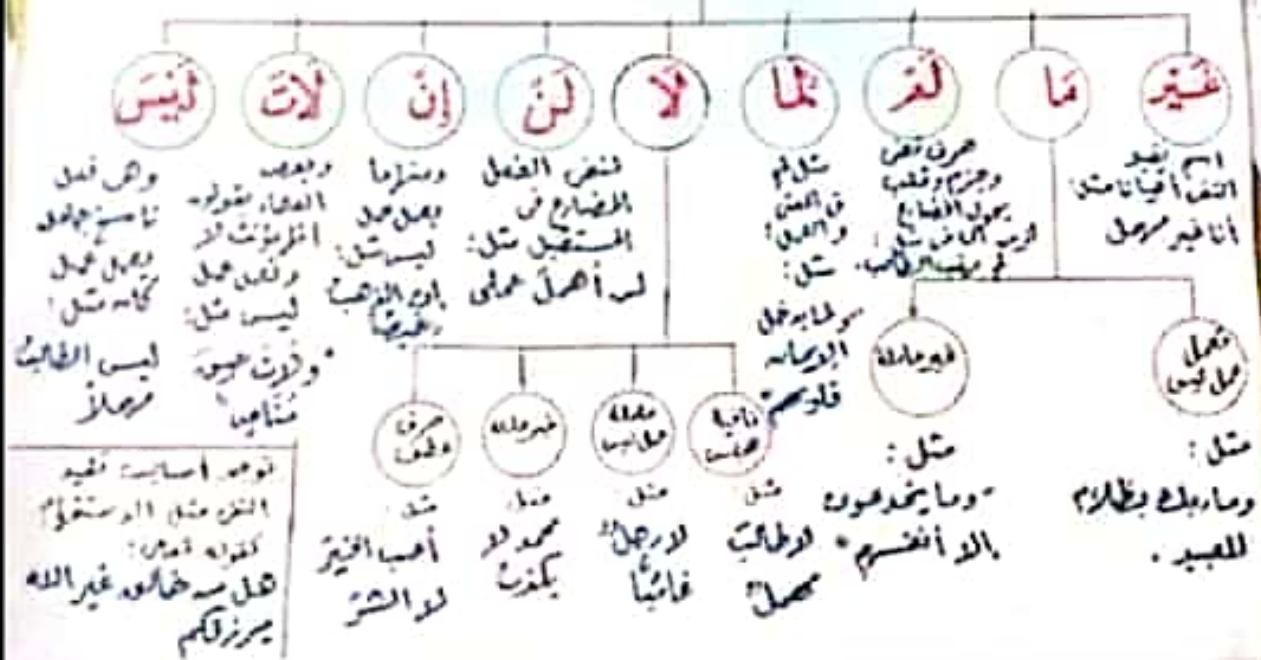 غَيْر
اسم يفيد
النفي أحيانا مثل:
أنا غير مهمل
مَا
تعمل
عمل ليس
مثل:
وما ربك بظلام
للعبيد .
غير عاملة
مثل:
"وما يخدعون
إلا أنفسهم"
لَمْ
حرف نفي
وجزم وقلب
يحول المضارع
لمّا
مثل لم
في المعنى
والعمل
مثل:
ولما يدخل
الإيمان
قلوبهم
لَا
نافية
للجنس
مثل
لا طالبَ
مهملٌ
عاملة
عمل ليس
مثل
لا رجلٌ
غائبًا
غير عاملة
مثل
محمد لا
يكذب
حرف
عطف
مثل
أحب الخيرَ
لا الشرَّ
لَنْ
تنفي الفعل
المضارع في
المستقبل مثل:
لن أهملَ عملي
إنْ
تعمل عمل
ليس مثل:
إن الذهب
رخيصًا
لَاتَ
وتعمل عمل
ليس مثل:
"ولات حين
مناص"
لَيْسَ
وهي فعل
ناسخ جامد
يعمل عمل
كان مثل:
ليس الطالبُ
مهملاً
توجد أساليب تفيد
النفي مثل الاستفهام
كقوله تعالى:
هل من خالق غير الله
يرزقكم